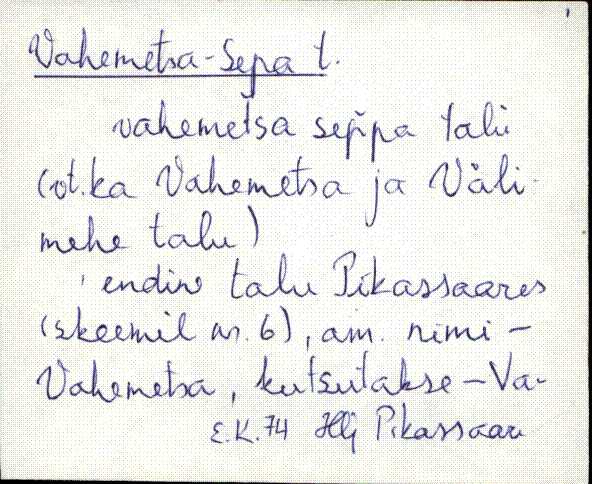 Vahemetsa-Sepa t.
vahemetsa sep̌pa talu
(vt. ka Vahemetsa ja Väli-
mehe talu)
endine talu Pikassaares
(skeemil nr. 6), am. nimi -
Vahemetsa, kutsutakse - Va-
E.K.74 Hlj Pikassaar